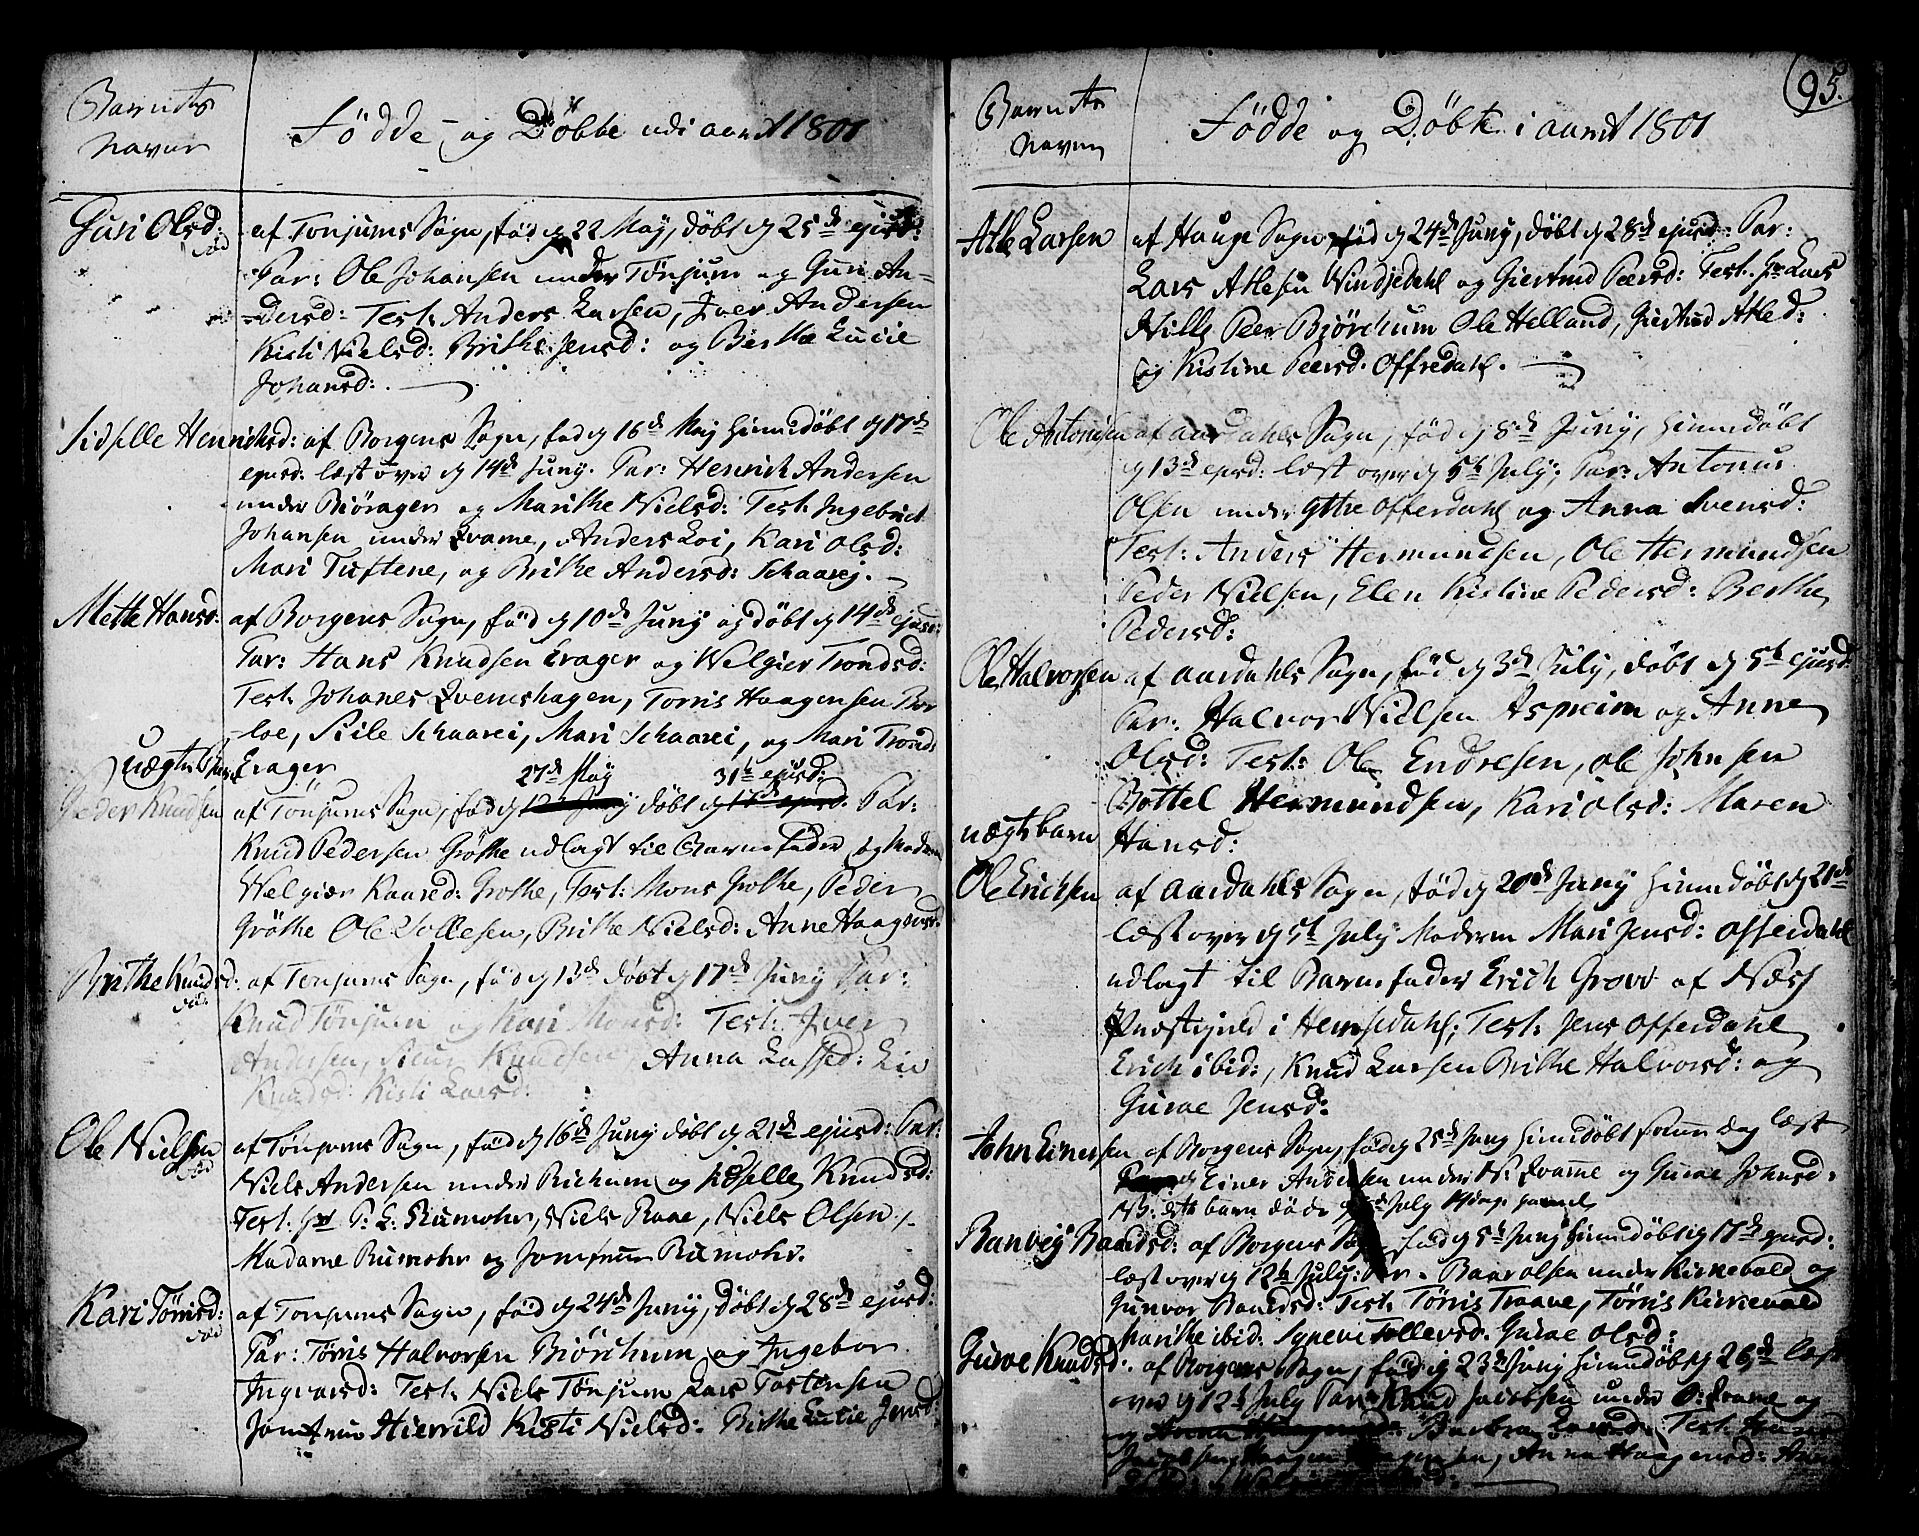 Barnets
Navne
Födde og Döbte udi aaret 1801
Guri Olsd: af Tönjums Sogn, föd d 22 May, döbt d 25de ejusd:
död
Par: Ole Johansen under Tönjum og Guri An-
dersd: Test: Anders Larsen, Iver Andersen
Kisti Nielsd: Brithe Jensd: og Berthe Lucie
Johansd:
Sidselle Henrichsd: af Borgens Sogn, föd d 16de May hiemdöbt d 17de
ejusd: læst over d 14de Juny. Par: Henrich Andersen
under Biöragen og Marithe Nielsd: Test: Ingebrict
Johansen under Qvame, Anders Loi, Kari Olsd:
Mari Tuftene, og Brithe Andersd: Schaarej.
Mette Hansd: af Borgens Sogn, föd d 10de Juny og döbt d 14de ejusd:
Par: Hans Knudsen Erager og Welgier Trondsd:
Test: Johanes Qvemshagen, Torris Haagensen Bor
loe, Sille Schaarei, Mari Schaarei, og Mari Tronds
Erager
uægte
27de May 31te ejusd:
Peder Knudsen af Tönjums Sogn, föd d döbt d Par:
Knud Pedersen Gröthe udlagt til Barnefader og Moderen
Welgiær Kaared: Grothe, Test: Mons Grothe, Peder
Gröthe Ole Tollesen, Brithe Nielsd: Anne Haagensd:
Brithe Knudsd: af Tonjums Sogn, föd d 13de döbt d 17de Juny Par:
död
Knud Tönjum og Kari Monsd: Test: Iver
Andersen, Siur Knudsen Anna Lassed: Liv
Knudsd: Kisti Larsd:
Ole Nielsen af Tönjums Sogn, föd d 16de Juny döbt d 21de ejusd: Par:
död
Niels Andersen under Richum og Sidselle Knudsd:
Test: Hr P: L: Rumohr, Niels Raae, Niels Olsen,
Madame Rumohr og Jomfrue Rumohr.
Kari Törrisd: af Tonjums Sogn, föd d 24de Juny, döbt d 28de ejusd:
död
Par: Törris Halvorsen Biörchum og Ingebor
Ingvarsd: Test: Niels Tönjum Lars Tostensen
Jomfrue Hierrild Kisti Nielsd: Brithe Lucie Jensd:
95.
Barnets
Navne
Födde og Döbte i aaret 1801
Atle Larsen af Hauge Sogn föd d 24de Juny, döbt d 28de ejusd: Par:
Lars Atlesen Vindjedahl og Giertrud Peersd: Test: Hr Lars
Nills Peer Biörchum Ole Helland, Giertrud Atled:
og Kistine Peersd. Offredahl.
Ole Antonisen af Aardahls Sogn, föd d 8de Juny, hiemdöbt
d 13de ejusd: læst over d 5te July; Par: Antonius
Olsen under Yttre Offerdahl og Anna Svensd:
Test: Anders Hermundsen, Ole Hermundsen
Peder Nielsen, Elen Kistine Pedersd: Berthe
Pedersd:
Ole Halvorsen af Aardahls Sogn, föd d 3de July, döbt d 5te ejusd:
Par: Halvor Nielsen Aspreim og Anne
Olsd: Test: Ole Endresen, Ole Johnsen
Bottel Hermundsen, Kari Olsd: Maren
Hansd:
uægte barn
Ole Erichsen af Aardahls Sogn, föd d 20de Juny hiemdöbt d 21de
læst over d 5te July Moderen Mari Jensd: Offerdahl
udlagt til Barnefader Erich Grove af Næss
Præstegield i Hemsedahl; Test: Jens Offerdahl
Erich ibid:, Knud Larsen Brithe Halvorsd: og
Gurae Jensd:
John Einersen af Borgens Sogn, föd d 25de Juny hiemdöbt samme dag læst
Einer Andersen under N: Qvame og Gurae Johnsd:
NB: dette barn döde July
Ranveig Baardsd: af Borgens Sogn föd d 5te Juny hiemdöbt d 17de ejusd:
læst over d 12te July: Par: Baar Olsen under Kirkevold og
Gunvor Baardsd: Test: Törris Traave, Törris Kirkevold
Marithe ibid. Synneve Tollevsd. Gurae Olsd:
Gurae Knudsd: af Borgens Sogn, föd d 23de Juny hiemdöbt d 26de læst
over d 12te July Par: Knud Jacobsen under Qvame og
og Barbra Test:
Haagensen, Anna Haagensd: